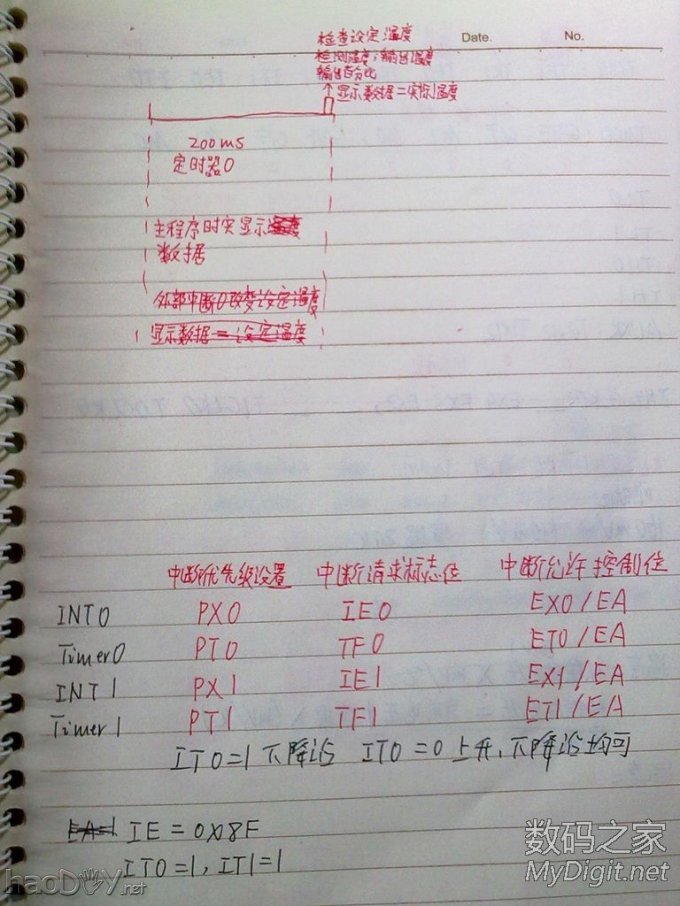 检查设定温度
Date.
No.
检测温度;输出温度
输出百分比
显示数据=实际温度
200ms
定时器0
主程序时实显示温度
数据
外部中断0改变设定温度
显示数据=设定温度
中断优先级设置 中断请求标志位 中断允许控制位
INT0 PX0 IE0 EX0/EA
Timer0 PT0 TF0 ET0/EA
INT1 PX1 IE1 EX1/EA
Timer1 PT1 TF1 ET1/EA
IT0=1 下降沿 IT0=0 上升,下降沿均可
EA=1 IE=0X8F
IT0=1,IT1=1
数码之家
MyDigit.net
haoDIY.net